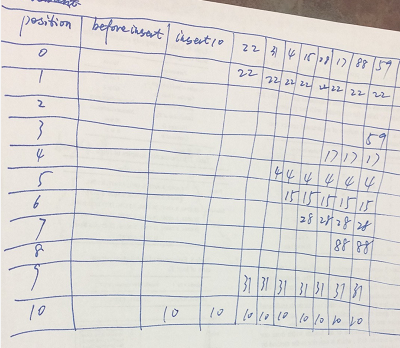 position before insert insert 10 22 31 4 15 28 17 88 59
0
1 22 22 22 22 22 22 22 22
2
3 59
4 17 17 17
5 4 4 4 4 4 4
6 15 15 15 15 15
7 28 28 28 28
8 88 88
9 31 31 31 31 31 31 31
10 10 10 10 10 10 10 10 10 10